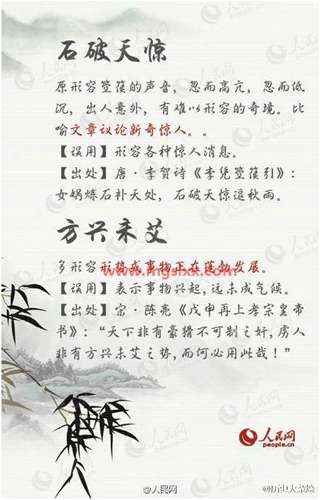 石破天惊
原形容箜篌的声音，忽而高亢，忽而低
沉，出人意外，有难以形容的奇境。比
喻文章议论新奇惊人。。
【误用】形容各种惊人消息。
【出处】唐·李贺诗《李凭箜篌引》：
女娲炼石补天处，石破天惊逗秋雨。
方兴未艾
多形容形势或事物正在蓬勃发展。
【误用】表示事物兴起，远未成气候。
【出处】宋·陈亮《戊申再上孝宗皇帝
书》：“天下非有豪猾不可制之奸，虏人
非有方兴未艾之势，而何必用此哉！”
人民网
people.cn
@人民网